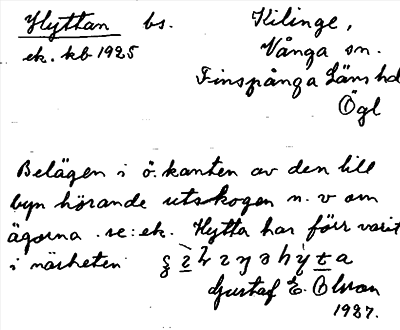 Hyttan bs. Kilinge,
ek. kb 1925 Vånga sn.
Finspånga Läns hd
Ögl
Belägen i ö. kanten av den till
byn hörande utskogen n. v om
ägorna. se: ek. Hytta har förr varit
i närheten
Gustaf E. Olson
1927.